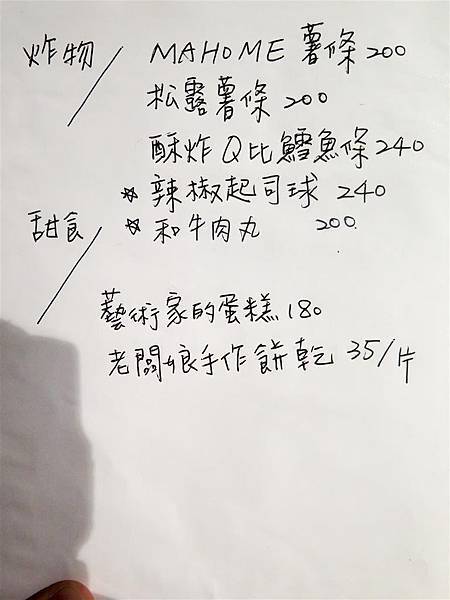 炸物/ MAHOME 薯條 200
松露薯條 200
酥炸Q比鱈魚條 240
☆辣椒起司球 240
甜食/ ☆和牛肉丸 200
藝術家的蛋糕 180
老闆娘手作餅乾 35/片